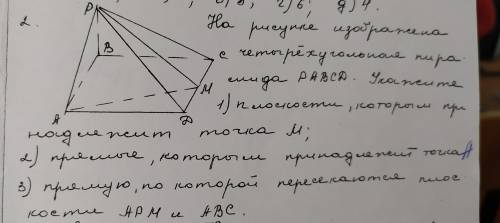 2.
На рисунке изображена
четырёхугольная пира-
мида PABCD. Укажите
1) плоскости, которым при
надлежит точка M;
2) прямые, которым принадлежит точка A
3) прямую, по которой пересекаются плос-
кости APM и ABC.
P
B
C
M
A
D